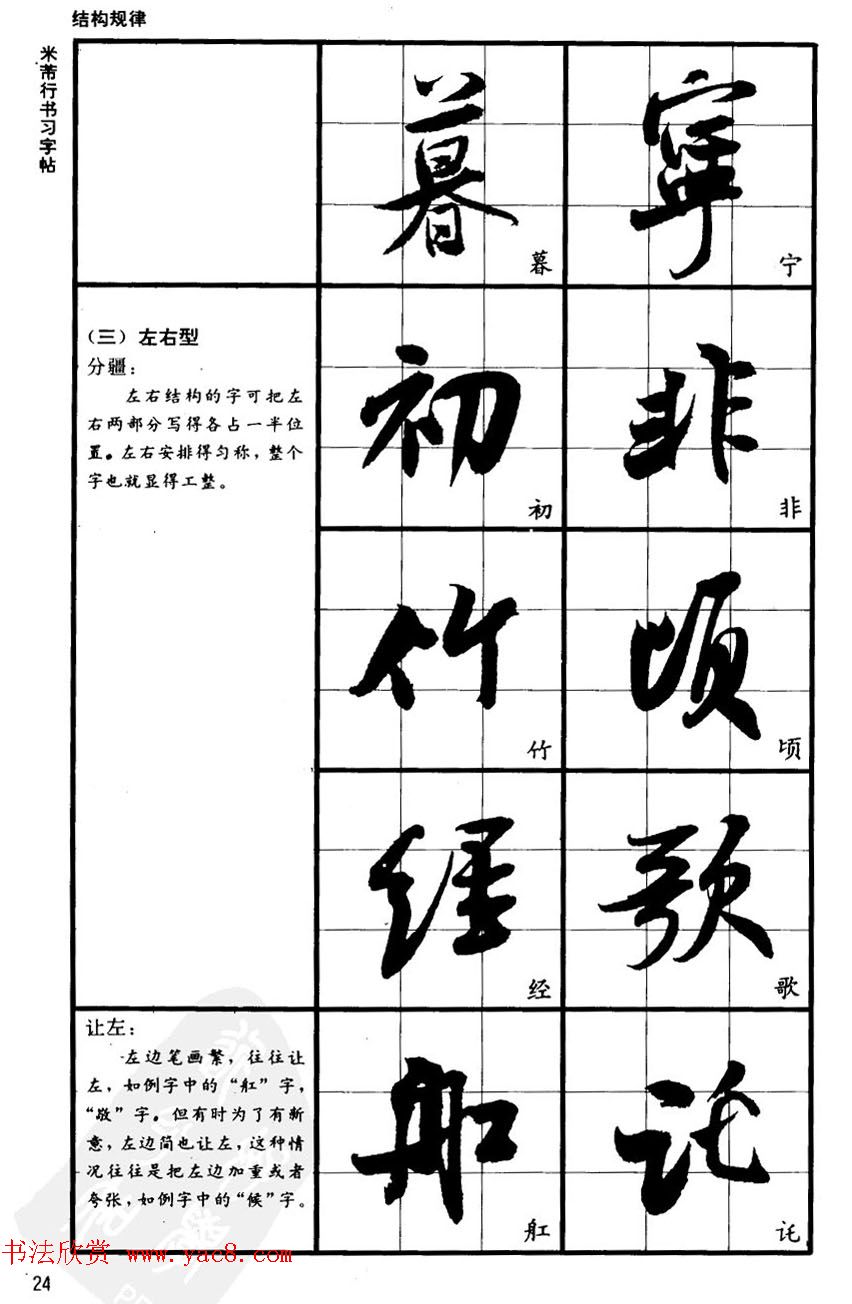 结构规律
米芾行书习字帖
暮 寧
暮 宁
（三）左右型
分疆：
左右结构的字可把左
右两部分写得各占一半位
置。左右安排得匀称，整个
字也就显得工整。
初 非
初 非
竹 顷
竹 顷
经 歌
经 歌
让左：
左边笔画繁，往往让
左，如例字中的“舡”字，
“敌”字。但有时为了有新
意，左边简也让左，这种情
况往往是把左边加重或者
夸张，如例字中的“候”字。
舡 讬
舡 讬
书法欣赏 www.yac8.com
24